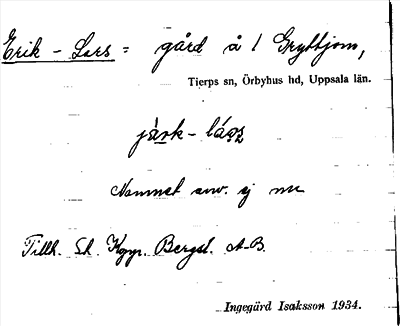 Erik - Lars = gård å 1 Gryttjom,
Tierps sn, Örbyhus hd, Uppsala län.
järk - lás̥z
Namnet anv. ej nu
Tillh. St. Kopp. Bergsl. A-B.
Ingegärd Isaksson 1934.